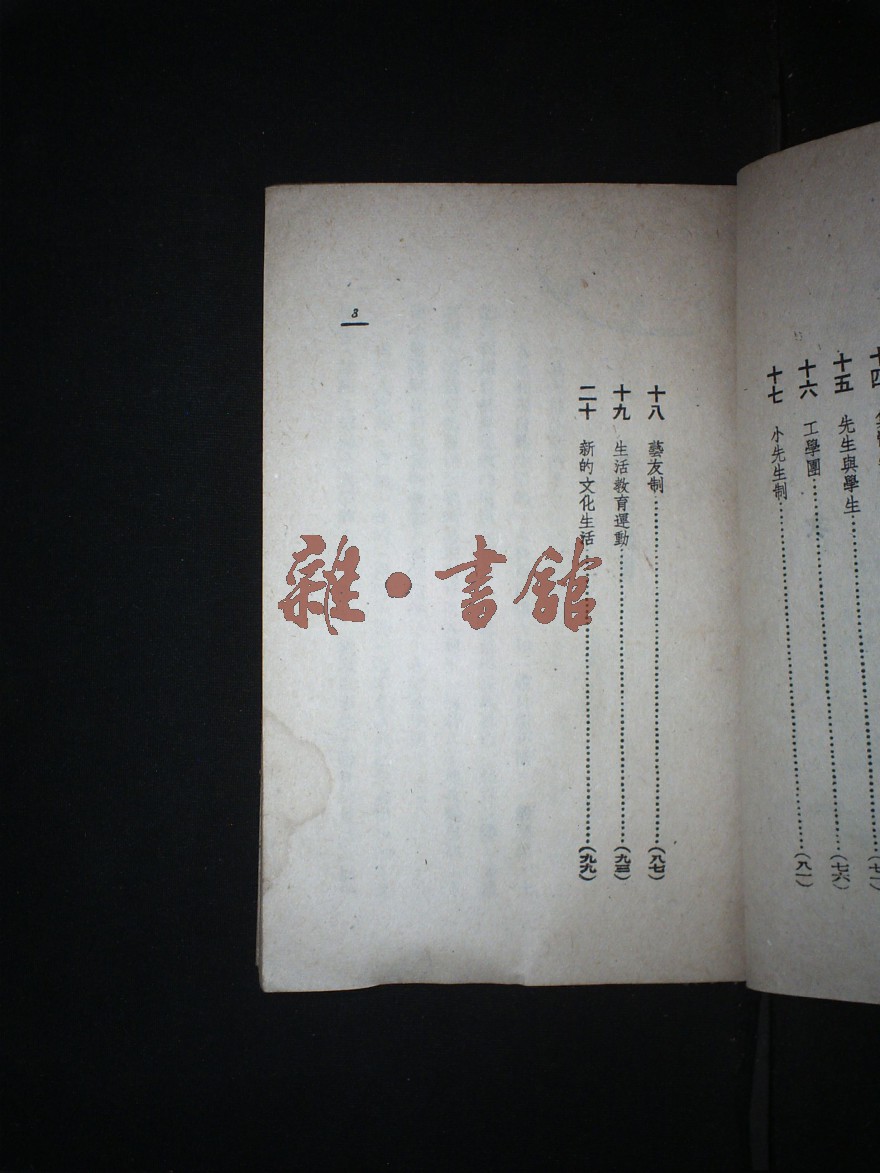 十四
十五 先生與學生……(七一)
十六 工學團……(七六)
十七 小先生制……(八一)
十八 藝友制……(八七)
十九 生活教育運動……(九三)
二十 新的文化生活……(九九)
3
雜·書館